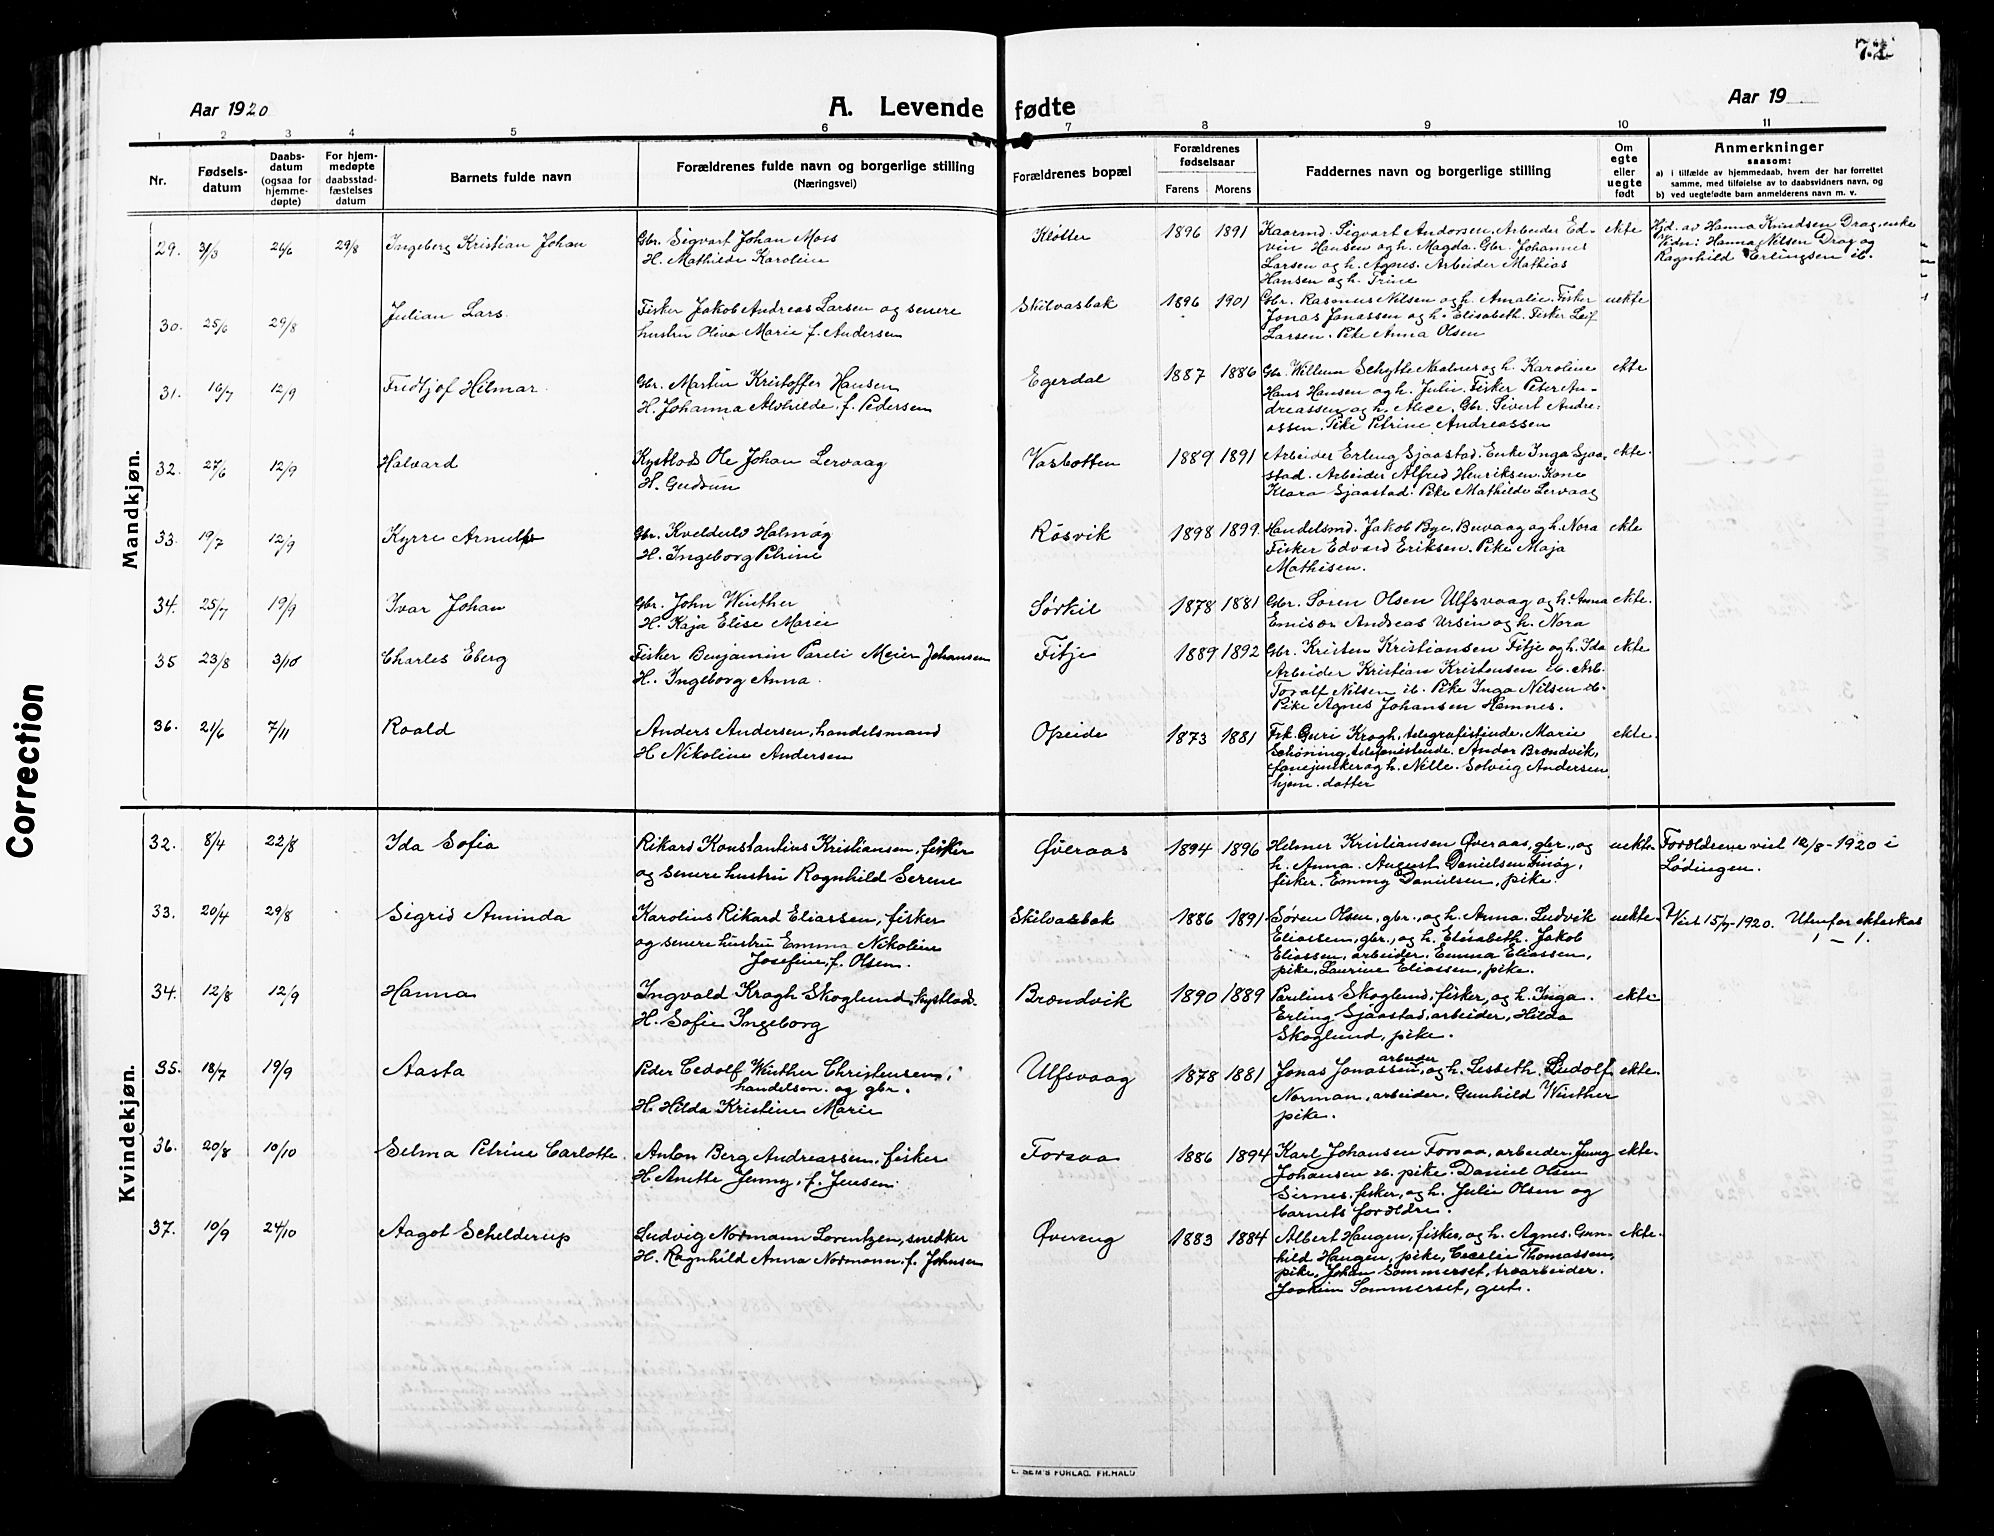 72
Aar 1920
A. Levende fødte
Aar 19
1 2 3 4 5 6 7 8 9 10 11
Nr.
Fødsels-
datum
Daabs-
datum
(ogsaa for
hjemme-
døpte)
For hjem-
medøpte
daabsstad-
fæstelses
datum
Barnets fulde navn
Forældrenes fulde navn og borgerlige stilling
(Næringsvei)
Forældrenes bopæl
Forældrenes
fødselsaar
Farens Morens
Faddernes navn og borgerlige stilling
Om
egte
eller
uegte
født
Anmerkninger
saasom:
a) i tilfælde av hjemmedaab, hvem der har forrettet
samme, med tilføielse av to daabsvidners navn, og
b) ved uegtefødte barn anmelderens navn m. v.
Mandkjøn.
29. 31/3 26/6 29/8 Ingeberg Kristian Johan
Gbr. Sigvart Johan Moss
H. Mathilde Karoline
Kløtter 1896 1891
Kaarmd. Sigvart Andorsen. Arbeider Ed-
vin Hansen og h. Magda. Gbr. Johannes
Larsen og h. Agnes. Arbeider Mathias
Hansen og h. Trine
ekte
Hjd. av Hanna Knudsen Drag, enke
Vidn: Hanna Nilsen Drag og
Ragnhild Erlingsen ib.
30. 25/6 29/8 Julian Lars.
Fisker Jakob Andreas Larsen og senere
hustru Oliva Marie f. Andersen
Skilvasbak 1896 1901
Gbr. Rasmus Nilsen og h. Amalie. Fisker
Jonas Jonassen og h. Elisabeth. Fisker Leif
Larsen. Pike Anna Olsen
uekte
31. 16/7 12/9 Fredtjof Hilmar.
Gbr. Martin Kristoffer Hansen
H. Johanna Alvhilde, f. Pedersen
Egerdal 1887 1886
Gbr. Willum Schytte og h. Karoline
Hans Hansen og h. Julie. Fisker Peter An-
dreassen og h. Alice. Gbr. Sivert Andre-
assen. Pike Petrine Andreassen
ekte
32. 27/6 12/9 Halvard
Kystlods Ole Johan Lervaag
H. Gudrun
Vasbotten 1889 1891
Arbeider Erling Sjaastad. Enke Inga Sjaa-
stad. Arbeider Alfred Henriksen. Kone
Klara Sjaastad. Pike Mathilde Lervaag
ekte.
33. 19/7 12/9 Kyrre
Gbr. Kveldulv Halmøy
H. Ingeborg Petrine
Røsvik 1898 1899.
Handelsmd. Jakob Bye. Buvaag og h. Nora
Fisker Edvard Eriksen. Pike Maja
Mathisen.
ekte
34. 25/7 19/9 Ivar Johan
Gbr. John Winther
H. Kaja Elise Marie
Sørkil 1878 1881
Gbr. Søren Olsen Ulfsvaag og h. Anna
Emisær Andreas Ursin og h. Nora
ekte.
35 23/8 3/10 Charles Eberg
Fisker Benjamin Pareli Meier Johansen
H. Ingeborg Anna.
Fitje 1889 1892
Gbr. Kristen Kristiansen Fitje og h. Ida
Arbeider Kristian Kristensen ib. Arb.
Toralf Nilsen ib. Pike Inga Nilsen ib.
Pike Agnes Johansen Hemnes.
ekte
36. 21/6 7/11 Roald
Anders Andersen, handelsmand
H. Nikoline Andersen
Opeide 1873 1881
Frk. Guri Krogh, telegrafistinde. Marie
Schøning, telefonistinde. Andor Brændvik,
fanejunker og h. Nille. Solveig Andersen,
hjem. datter
ekte.
Kvindekjøn.
32. 8/4 22/8 Ida Sofia
Rikard Konstantius Kristiansen, fisker
og senere hustru Ragnhild Serene
Øveraas 1894 1896
Helmer Kristiansen Øveraas, gbr., og
h. Anna. August Danielsen Finøy,
fisker. Emmy Danielsen, pike.
uekte.
Forældrene viet 12/8-1920 i
Lødingen.
33. 20/4 29/8 Sigrid Aminda
Karolius Rikard Eliassen, fisker
og senere hustru Emma Nikoline
Josefine, f. Olsen.
Skilvasbak 1886 1891
Søren Olsen, gbr., og h. Anna. Ludvik
Eliassen, gbr., og h. Elisabeth. Jakob
Eliassen, arbeider. Emma Eliassen,
pike, Laurine Eliassen, pike.
uekte.
Viet 15/7-1920. Utenfor ekteskap
1 – 1.
34. 12/8 12/9 Hanna
Ingvald Kragh Skoglund, kystlods.
H. Sofie Ingeborg
Brændvik 1890 1889
Paulius Skoglund, fisker, og h. Inga.
Erling Sjaastad, arbeider, Hilda
Skoglund, pike.
ekte
35. 18/7 19/9 Aasta
Peder Cedolf Winther Christensen,
handelsm. og gbr.
H. Hilda Kristine Marie
Ulfsvaag 1878 1881
Jonas Jonassen, arbeider og h. Lisbeth. Ludolf
Norman, arbeider. Gunhild Winther
pike.
ekte.
36. 20/8 10/10 Selma Petrine Carlotte.
Anton Berg Andreassen, fisker
H. Anette Jenny, f. Jensen.
Forsaa 1886 1894
Karl Johansen Forsaa, arbeider. Jenny
Johansen ib. pike. Daniel Olsen
Sirnes, fisker, og h. Julie Olsen og
barnets forældre.
ekte.
37. 10/9 24/10 Aagot Schelderup
Ludvig Normann Lorentzen, snedker
H. Ragnhild Anna Normann, f. Johnsen
Øvereng 1883 1884
Albert Haugen, fisker, og h. Agnes. Gun-
hild Haugen, pike, Cecilie Thomassen,
pike, Johan Sommerset, træarbeider.
Joakim Sommerset, gut.
ekte.
Correction
E. SEM'S FORLAG, FR.HALD